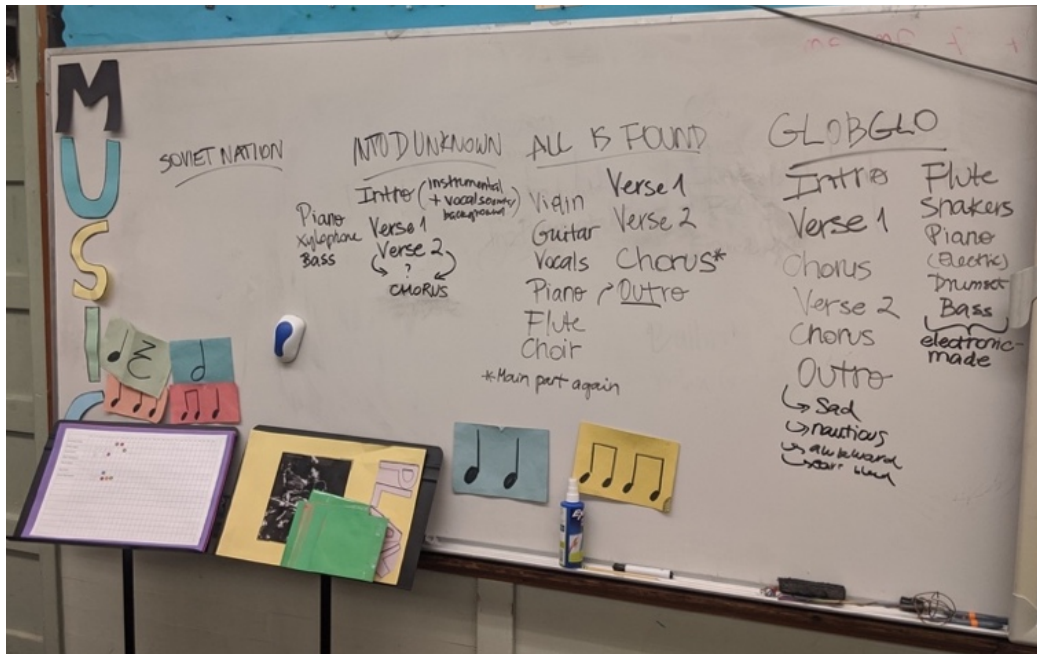 MUSIC
SOVIET NATION
INTO D UNKNOWN
Intro (instrumental
+ vocal sounds
background)
Piano
Xylophone
Bass
Verse 1
Verse 2
?
CHORUS
ALL IS FOUND
Violin
Guitar
Vocals
Piano
Flute
Choir
Verse 1
Verse 2
Chorus*
Outro
*Main part again
GLOBGLO
Intro
Verse 1
Chorus
Verse 2
Chorus
Outro
Sad
nautious
awkward
Flute
Shakers
Piano
(Electric)
Drumset
Bass
electronic-
made